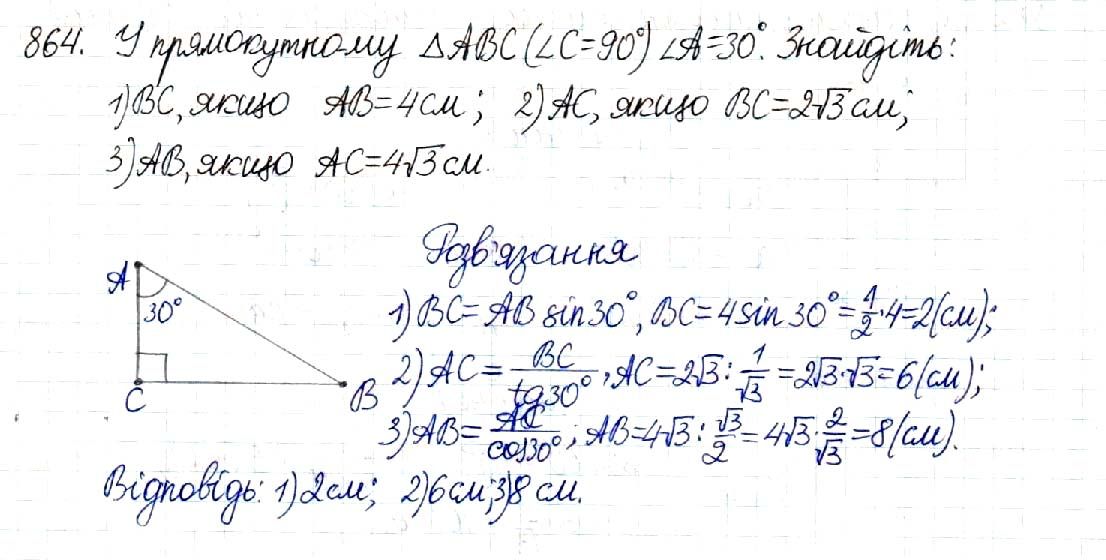 864. У прямокутному △ABC (∠C=90°) ∠A=30°. Знайдіть:
1) BC, якщо AB=4см; 2) AC, якщо BC=2√3 см;
3) AB, якщо AC=4√3 см.
Розв'язання
A
30°
C
B
1) BC = AB sin30°, BC=4sin30°=1/2·4=2(см);
2) AC = BC/tg30°, AC=2√3 : 1/√3 =2√3·√3=6(см);
3) AB = AC/cos30°; AB=4√3 : √3/2 = 4√3·2/√3 =8(см).
Відповідь: 1) 2см; 2) 6см; 3) 8 см.